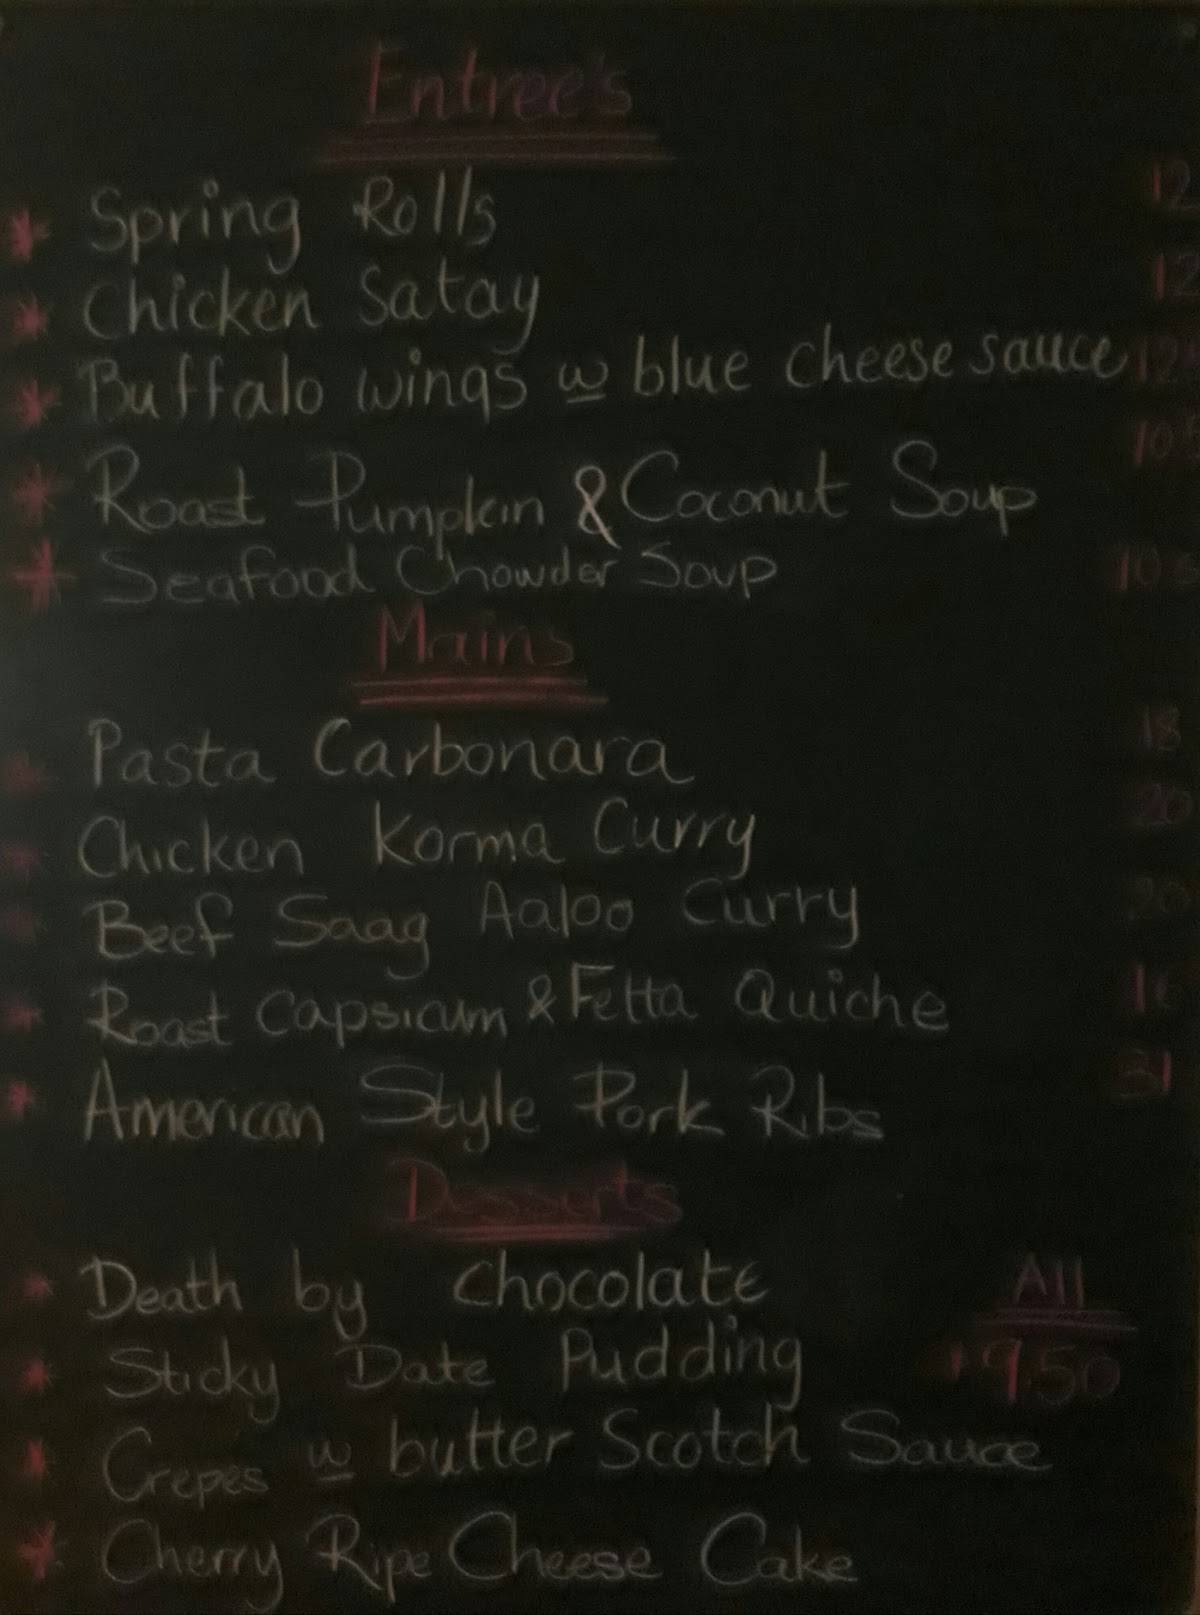 Entree's
Spring Rolls 12
Chicken Satay 12
Buffalo wings w blue cheese sauce 12
Roast Pumpkin & Coconut Soup 10
Seafood Chowder Soup 10
Mains
Pasta Carbonara 18
Chicken Korma Curry 20
Beef Saag Aaloo Curry 20
Roast Capsicum & Fetta Quiche
American Style Pork Ribs 31
Desserts
Death by Chocolate All
Sticky Date Pudding 9.50
Crepes w butter Scotch Sauce
Cherry Ripe Cheese Cake